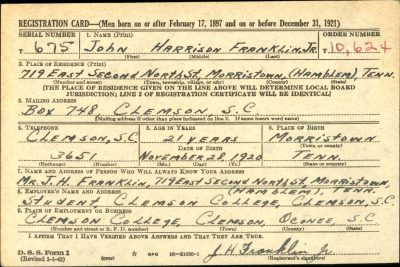 REGISTRATION CARD—(Men born on or after February 17, 1897 and on or before December 31, 1921)
SERIAL NUMBER 1. NAME (Print) ORDER NUMBER
T 675 JOHN HARRISON FRANKLIN, JR. T 10,624
(First) (Middle) (Last)
2. PLACE OF RESIDENCE (Print)
719 EAST SECOND NORTH ST, MORRISTOWN, (HAMBLEM), TENN.
(Number and street) (Town, township, village, or city) (County) (State)
[THE PLACE OF RESIDENCE GIVEN ON THE LINE ABOVE WILL DETERMINE LOCAL BOARD
JURISDICTION; LINE 2 OF REGISTRATION CERTIFICATE WILL BE IDENTICAL]
3. MAILING ADDRESS
BOX 748, CLEMSON, S.C
[Mailing address if other than place indicated on line 2. If same insert word same]
4. TELEPHONE 5. AGE IN YEARS 6. PLACE OF BIRTH
CLEMSON, S.C. 21 YEARS MORRISTOWN
DATE OF BIRTH (Town or county)
3651 NOVEMBER 28, 1920 TENN.
(Exchange) (Number) (Mo.) (Day) (Yr.) (State or country)
7. NAME AND ADDRESS OF PERSON WHO WILL ALWAYS KNOW YOUR ADDRESS
MR. J. H. FRANKLIN, 719 EAST SECOND NORTH ST, MORRISTOWN,
(HAMBLEM), TENN.
8. EMPLOYER'S NAME AND ADDRESS
STUDENT CLEMSON COLLEGE, CLEMSON, S.C.
9. PLACE OF EMPLOYMENT OR BUSINESS
CLEMSON COLLEGE, CLEMSON, OCONEE, S.C
(Number and street or R. F. D. number) (Town) (County) (State)
I AFFIRM THAT I HAVE VERIFIED ABOVE ANSWERS AND THAT THEY ARE TRUE.
D. S. S. Form 1 (over)
(Revised 1-1-42) J. H. Franklin Jr
(Registrant's signature)